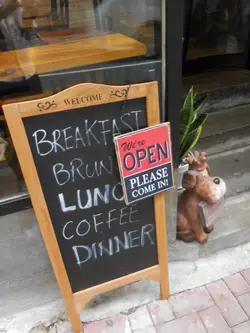 WELCOME
BREAKFAST
BRUN
LUNC
COFFEE
DINNER
We're
OPEN
PLEASE
COME IN!